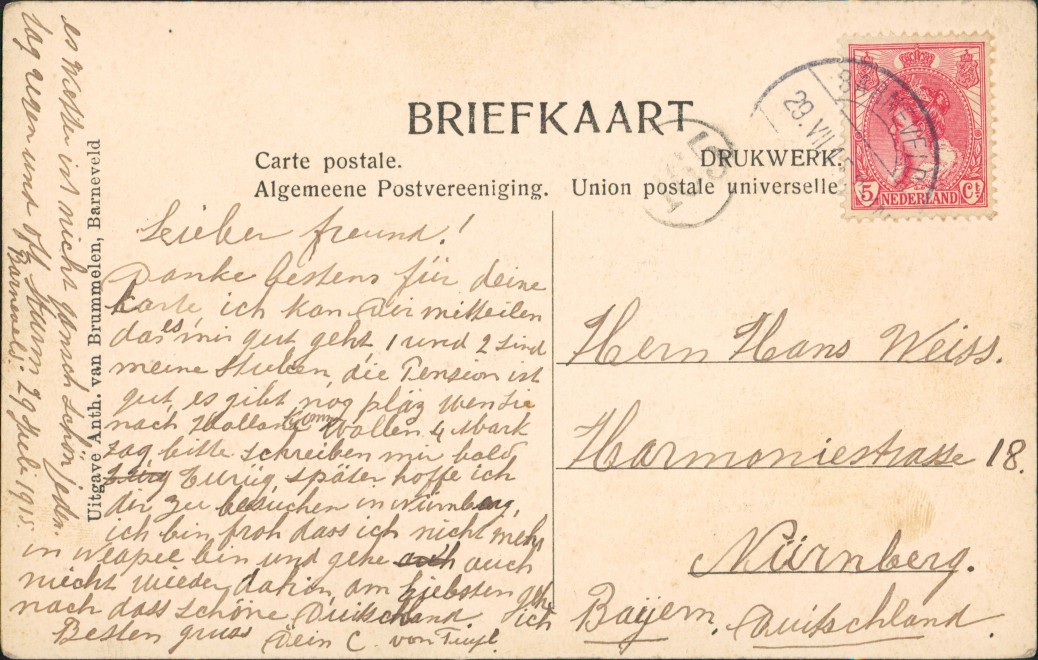 BRIEFKAART
Carte postale. DRUKWERK.
Algemeene Postvereeniging. Union postale universelle
BARNEVELD
29. VII.15
5 NEDERLAND Ct
Lieber freund!
Danke bestens für deine
karte ich kan Dir mitteilen
das es mir gut geht 1 und 2 sind
meine Stuben, die Pension ist
gut, es gibt nog plaz wen Sie
nach Holland komm Wollen 4 Mark
tag bitte schreiben mir bald
zurüg später hoffe ich
dir zu besuchen in Nürnberg,
ich bin froh dass ich nicht mehr
in bin und gehe auch
niecht wieder dahin, am liebsten geh ich
nach dass schöne Duitschland.
Besten gruss Dein C. von Tuyl.
es Wetter ist nicht schön jeden
tag regen und oft Sturm
Barneveld. 29 Juli 1915.
Uitgave Anth. van Brummelen, Barneveld
Hern Hans Weiss.
Harmoniestrasse 18.
Nürnberg.
Bayern. Duitschland.